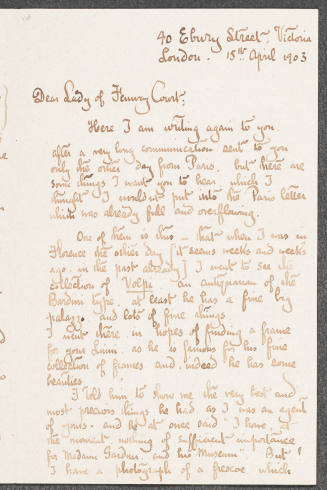 40 Ebury Street, Victoria
London. 15th April 1903
Dear Lady of Fenway Court,
Here I am writing again to you
after a very long communication sent to you
only the other day from Paris, but there are
some things I want you to hear, which I
thought I would not put into the Paris letter
which was already full and overflowing.
One of them is this — that when I was in
Florence the other day [it seems weeks and weeks
ago, in the past already] I went to see the
collection of Volpi — an antiquarian of the
Bardini type, at least he has a fine big
palazzo and lots of fine things.
I went there in hopes of finding a frame
for your Lippi, as he is famous for his fine
collection of frames and, indeed, he has some
beauties.
I told him to show me the very best and
most precious things he had as I was an agent
of yours — and he at once said "I have at
the moment nothing of sufficient importance
for Madame Gardner, and his Museum". "But"
I have a photograph of a fresco which